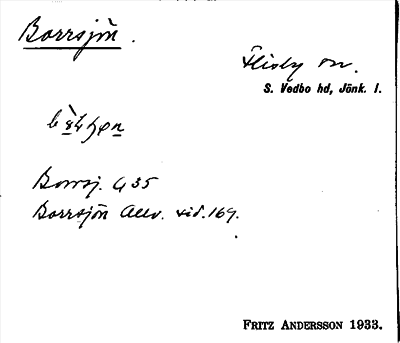 Borrsjön.
Flisby sn.
S. Vedbo hd, Jönk. l.
Borrsj. G 35
Borrsjön Allv. sid. 169.
FRITZ ANDERSSON 1933.